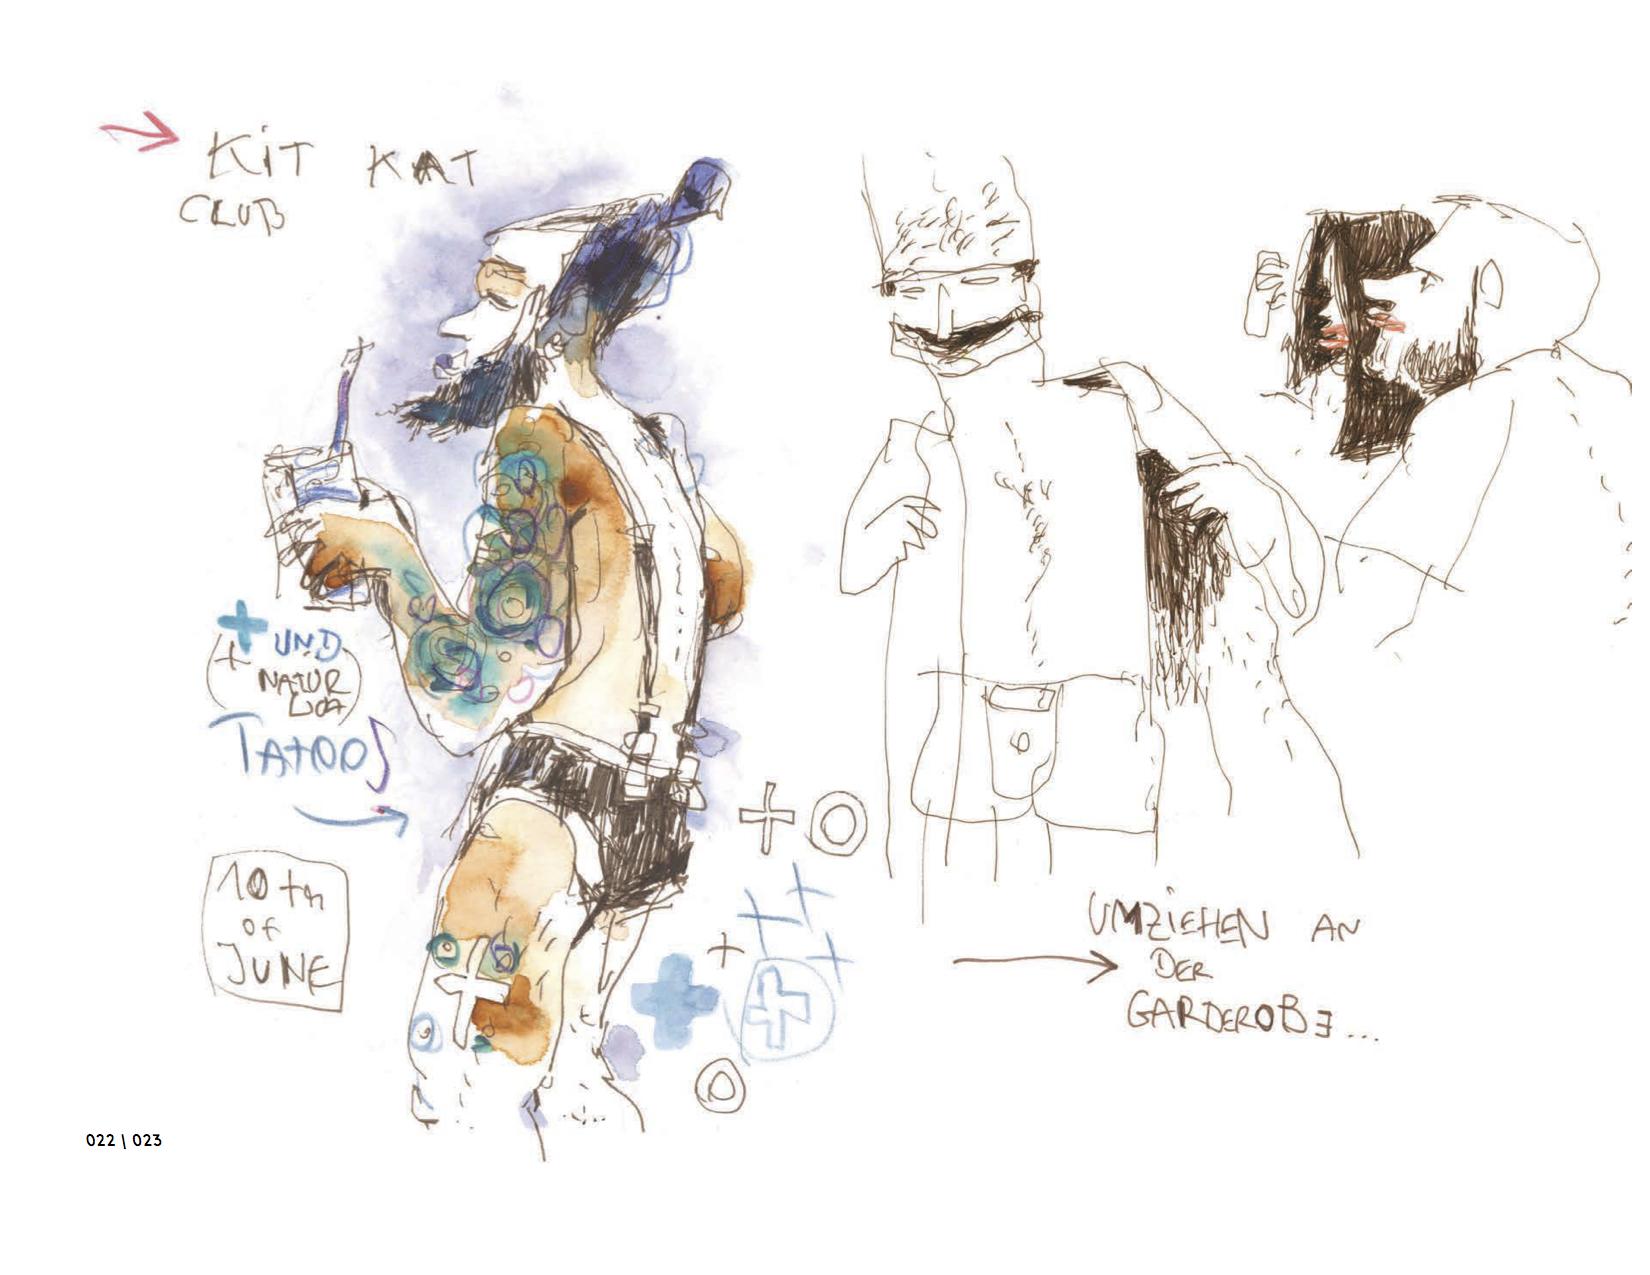 KiT KAT
CLUB
+ UND
(+ NATUR
LICH)
TATOOS
10th
OF
JUNE
UMZiEHEN AN
DER
GARDEROBE...
022 | 023